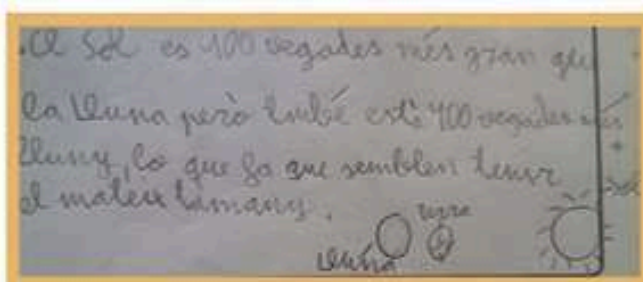 .El Sol es 400 vegades més gran que
la lluna però també està 400 vegades més
lluny, lo que fa que semblen tenir
el mateix tamany.
terra
lluna